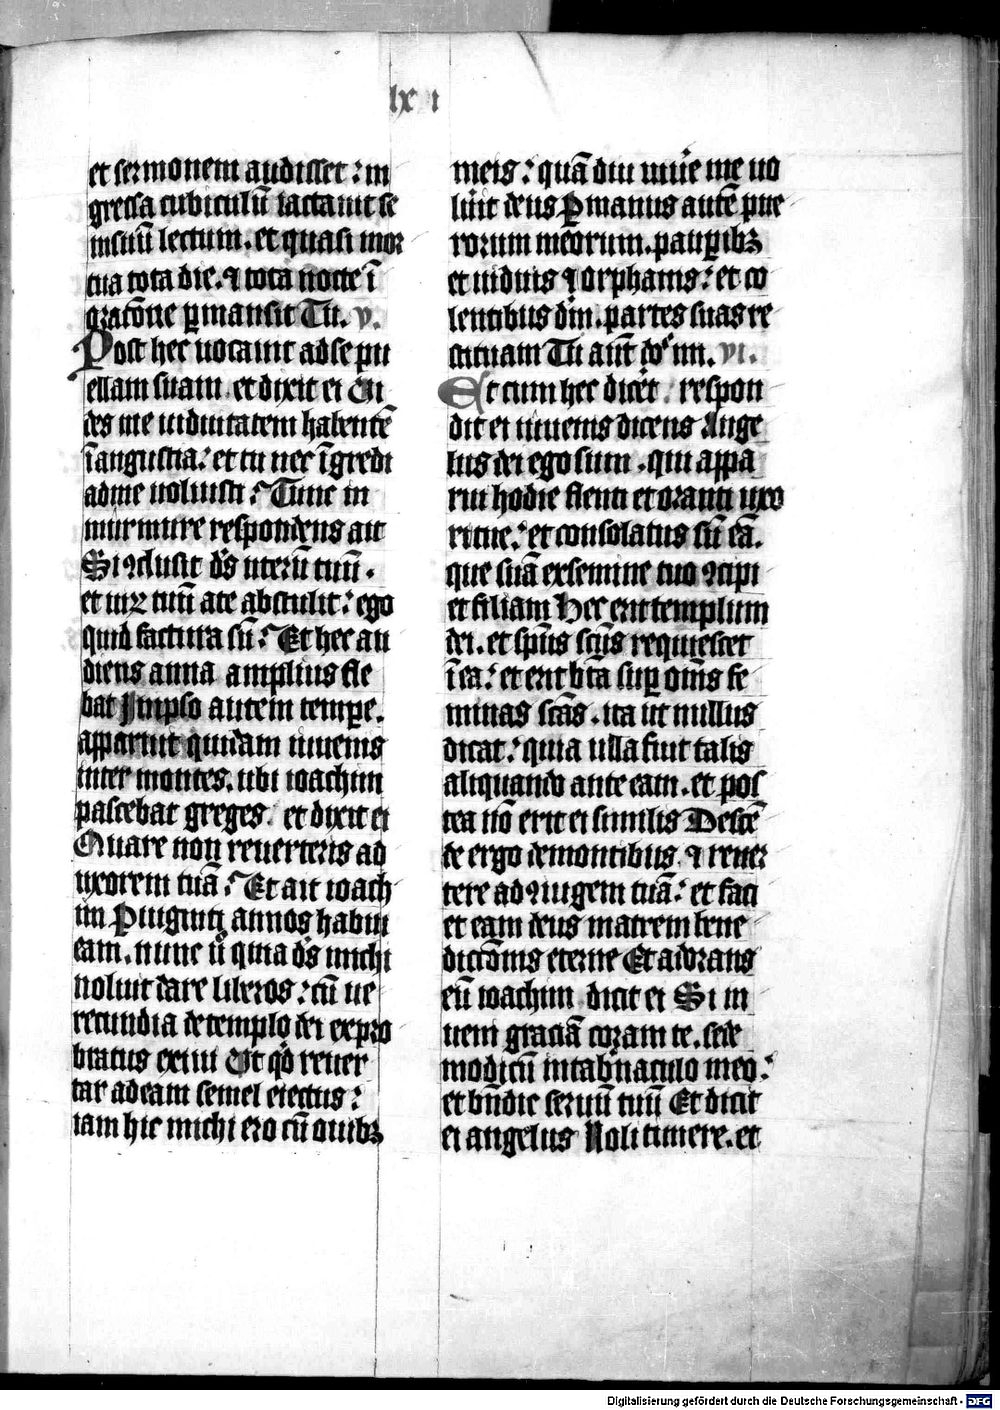 lx i
et sermonem audisset : in
gressa cubiculū iactauit se
insuū lectum . et quasi mor
tua tota die . ⁊ tota nocte ī
oracōne ꝑmansit Tu . v .
Post hec uocauit ad se pu
ellam suam et dixit ei Ui
des me uiduitatem habentē
ī angustia : et tu nec īgredi
ad me uoluisti : Tunc in
murmure respondens ait
Si ꝯclusit ds̄ uterū tuū .
et uiꝝ tuū a te abstulit : ego
quid factura sū : Et hec au
diens anna amplius fle
bat In ipso autem tempe .
apparuit quidam iuuenis
inter montes . ubi ioachim
pascebat greges . et dixit ei
Quare non reuerteris ad
uxorem tuā : Et ait ioach
im P uiginti annos habui
eam . nunc u̾ quia ds̄ michi
noluit dare liberos : cū ue
recundia de templo dei expro
bratus exiui Ut qd̄ reuer
tar ad eam semel eiectus :
iam hic michi ero cū ouibꝫ
meis : quādiu uiu̾e me uo
lu̾it deus Ꝑ manus autē pue
rorum meorum . pauꝑibꝫ
et uiduis ⁊ orphanis : et co
lentibus dm̄ . partes suas re
stituam Tu aūt do' mi . vi .
Et cum hec dicēt respon
dit ei iuuenis dicens Ange
lus dei ego sum . qui appa
rui hodie flenti et oranti uxo
ri tue : et consolatus sū eā .
que suā ex semine tuo ꝯcipi
et filiam Hec erit templum
dei . et sp̄us sc̄us requiescet
ī ea : et erit bt̄a sup om̄s fe
minas sc̄as . ita ut nullus
dicat : quia ulla fuit talis
aliquando ante eam . et pos
tea nō erit ei similis Descē
de ergo de montibus . ⁊ reuer
tere ad ꝯiugem tuā : et faci
et eam deus matrem bene
diccōnis eterne Et adorans
eū ioachim dicit ei Si in
ueni graciā coram te . sede
modicū in tab̄naculo meo :
et bn̄dic seruū tuū Et dicit
ei angelus Noli timere . et
Digitalisierung gefördert durch die Deutsche Forschungsgemeinschaft - DFG